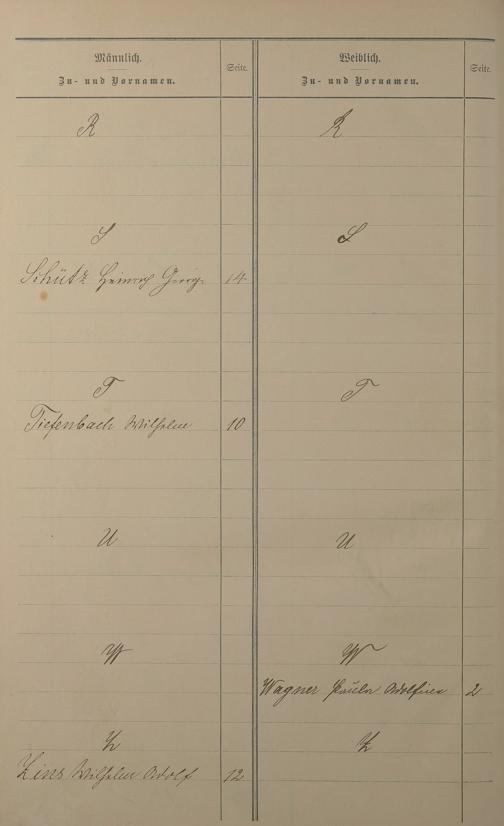 Männlich.
Zu- und Vornamen.
Seite.
R
S
Schütz Heinrich Georg 14
T
Tiefenbach Wilhelm 10
U
W
Z
Zins Wilhelm Adolf 12
Weiblich.
Zu- und Vornamen.
Seite.
R
S
T
U
W
Wagner Paula Adolfine 2
Z